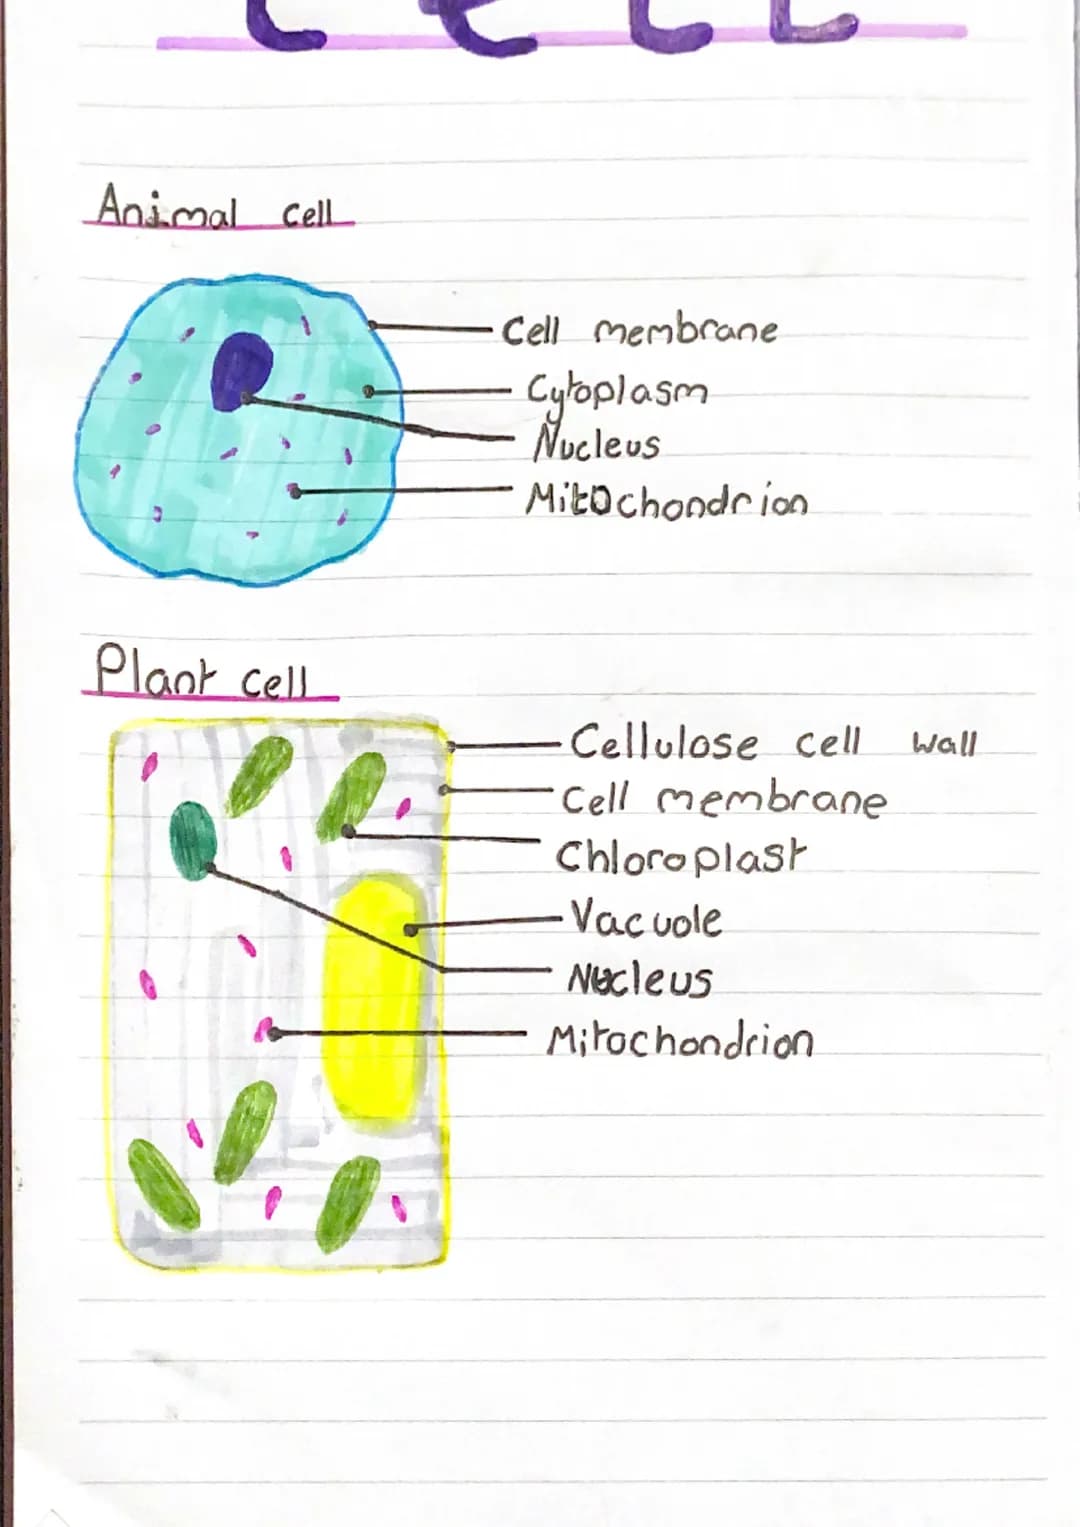 CELL
Animal cell
Cell membrane
Cytoplasm
Nucleus
Mitochondrion
Plant cell
Cellulose cell wall
Cell membrane
Chloroplast
Vacuole
Nucleus
Mitochondrion